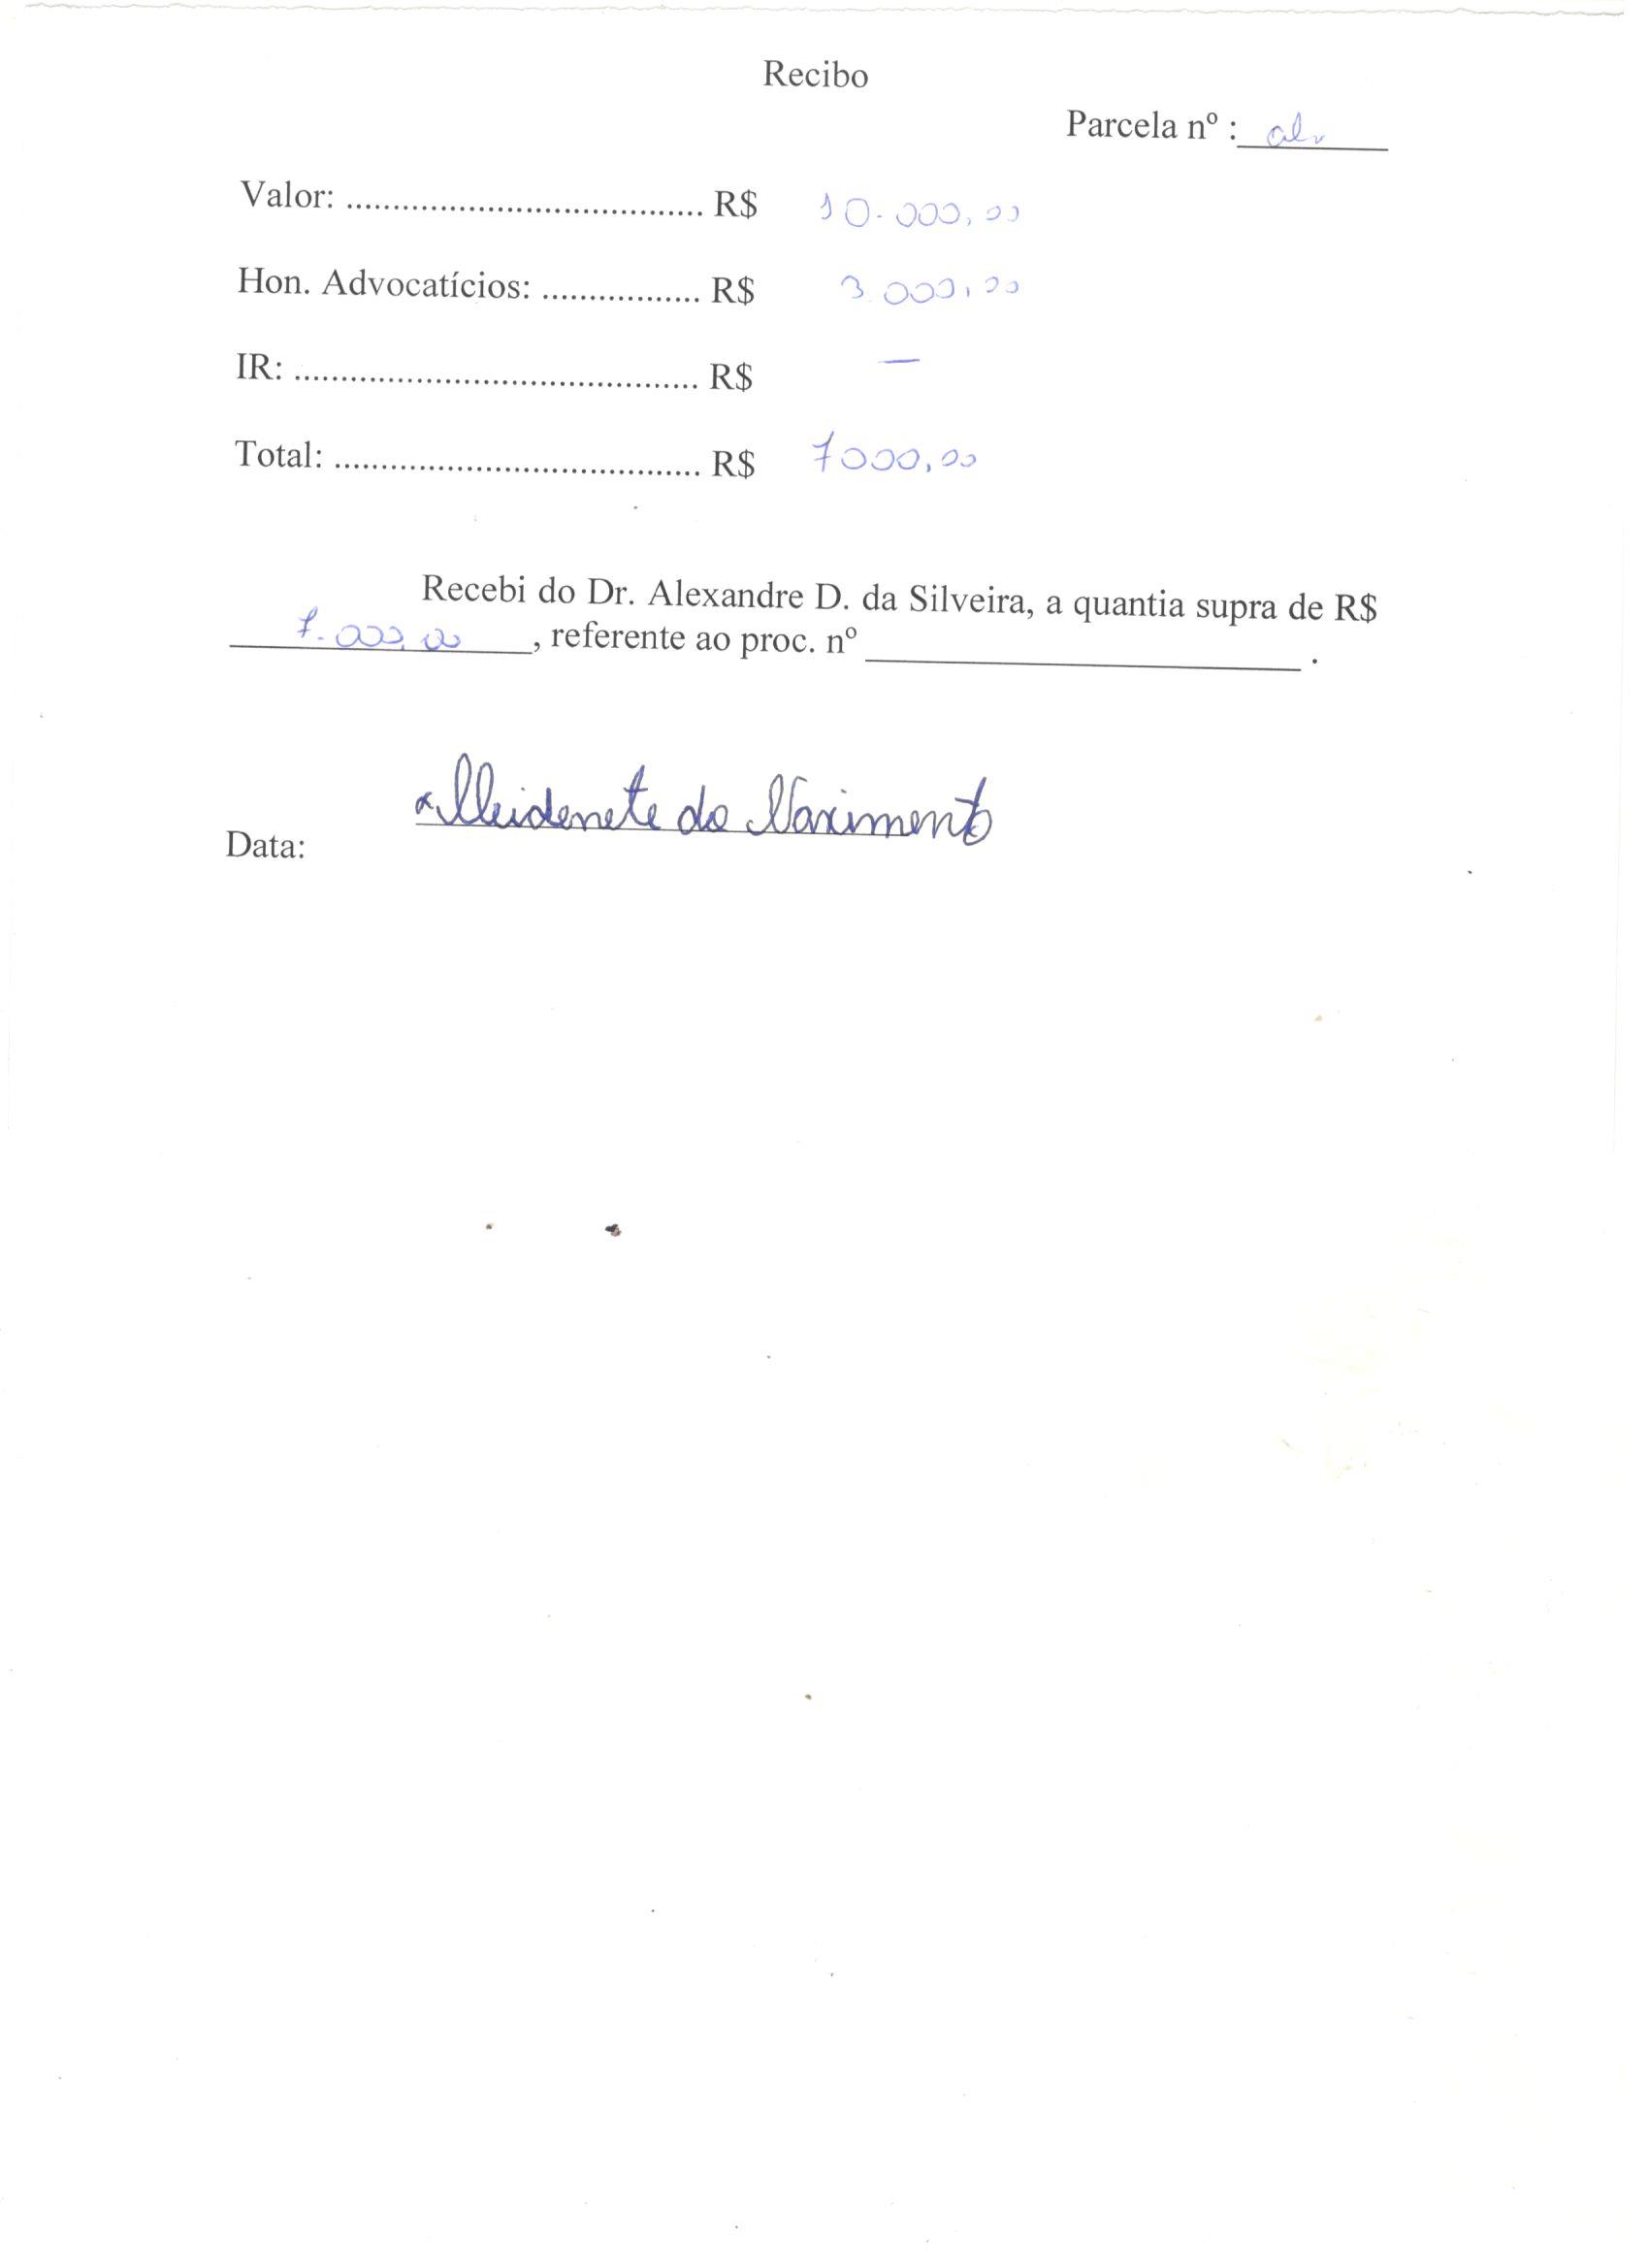 Recibo
Parcela nº :
Valor: ...................................... R$ 10.000,00
Hon. Advocatícios: ................. R$ 3.000,00
IR: ........................................... R$ —
Total: ....................................... R$ 7000,00
Recebi do Dr. Alexandre D. da Silveira, a quantia supra de R$
7.000,00, referente ao proc. nº ____________________ .
do Nascimento
Data: